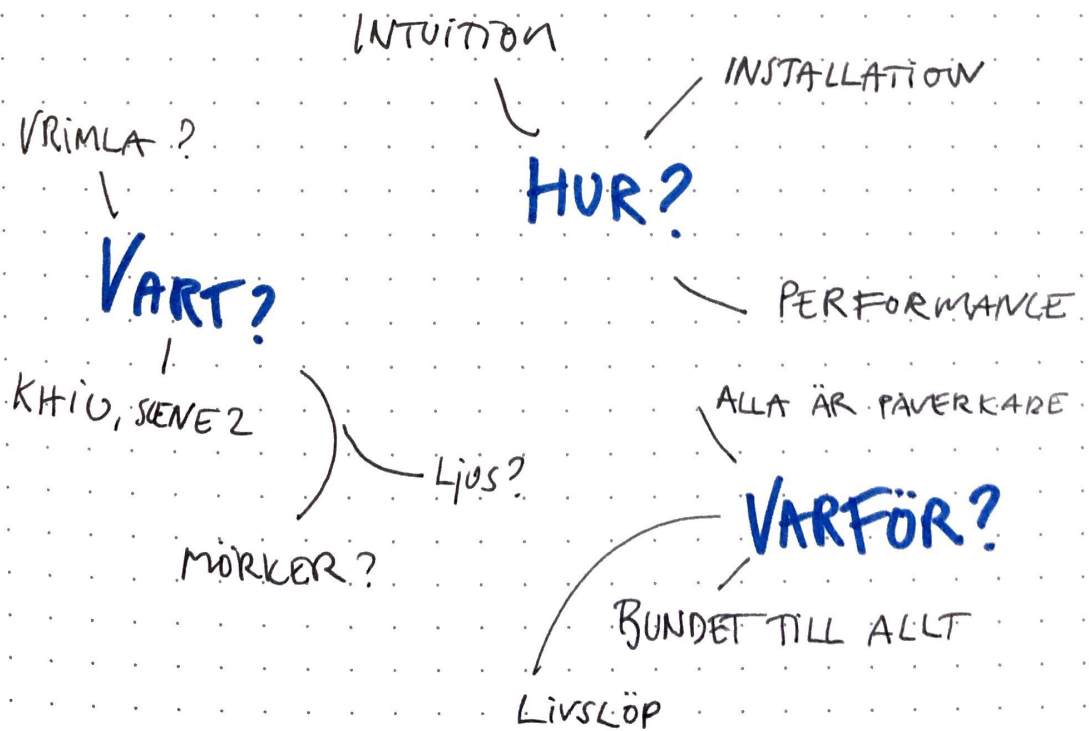 INTUITION
INSTALLATION
VRIMLA?
HUR?
VART?
PERFORMANCE
KHIO, SCENE 2
ALLA ÄR PÅVERKADE
LJUS?
VARFÖR?
MÖRKER?
BUNDET TILL ALLT
LIVSLÖP